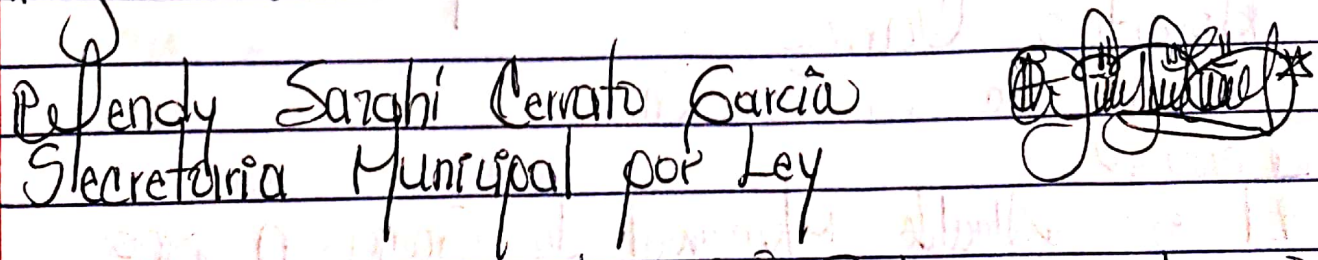 Sarahi Cerrato García
Secretaria Municipal por Ley